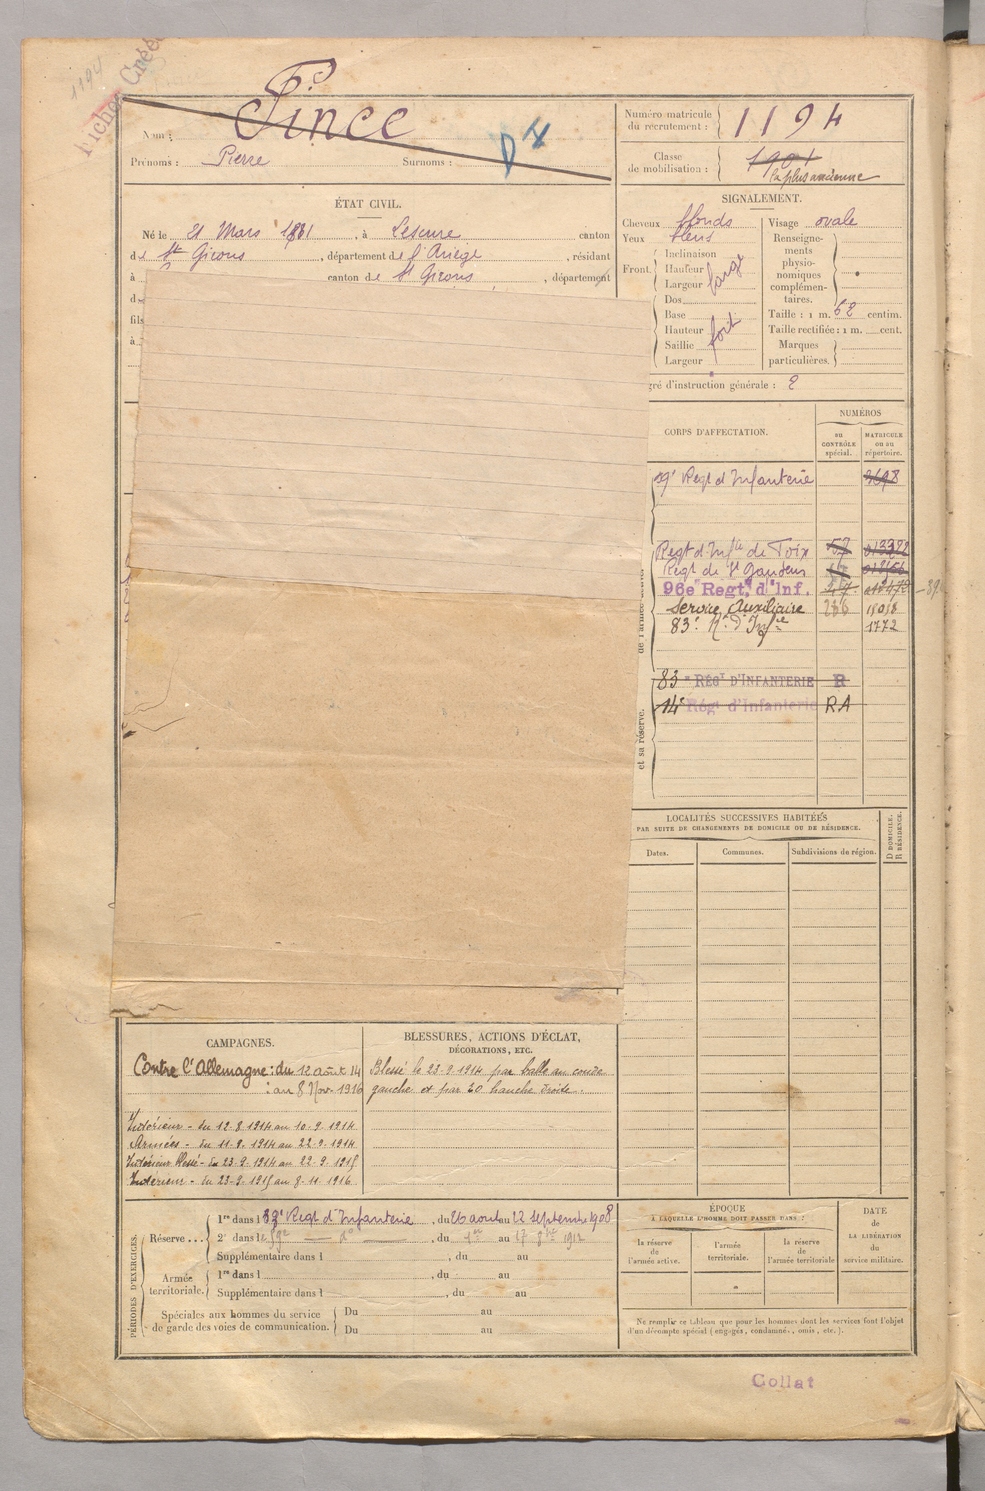 1194
Fiches Créé
Pince
Nom :
Prénoms : Pierre Surnoms :
Numéro matricule du recrutement : 1194
Classe de mobilisation : 1901
la plus ancienne
ÉTAT CIVIL.
Né le 21 Mars 1881, à Lescure canton
de St Girons, département de l'Ariège, résidant
à canton de St Girons, département
fils
à
SIGNALEMENT.
Cheveux blonds
Yeux bleus
Front. Inclinaison
Hauteur
Largeur
large
Dos
Base
Hauteur
Saillie
Largeur
fort
Visage ovale
Renseignements physionomiques complémentaires.
Taille : 1 m. 62 centim.
Taille rectifiée : 1 m. cent.
Marques particulières.
gré d'instruction générale : 2
CORPS D'AFFECTATION.
NUMÉROS
au CONTRÔLE spécial.
MATRICULE ou au répertoire.
59e Regt d'Infanterie
Regt d'Infie de Foix 57
Regt de St Gaudens
96e Regt. d'Inf.
Service Auxiliaire 286 15018
83e Rt d'Infie 1772
83e RÉGt D'INFANTERIE R
14e Régt d'Infanterie RA
de l'armée
et sa réserve.
LOCALITÉS SUCCESSIVES HABITÉES
PAR SUITE DE CHANGEMENTS DE DOMICILE OU DE RÉSIDENCE.
Dates.
Communes.
Subdivisions de région.
D DOMICILE.
R RÉSIDENCE.
CAMPAGNES.
Contre l'Allemagne : du 12 août 14
: au 8 Nov. 1916
Intérieur - du 12.8.1914 au 10.9.1914
Armées - du 11.9.1914 au 22.9.1914
Intérieur blessé - du 23.9.1914 au 22.9.1915
Intérieur - du 23.9.1915 au 8.11.1916
BLESSURES, ACTIONS D'ÉCLAT,
DÉCORATIONS, ETC.
Blessé le 23.9.1914 par balle au coude
gauche et par hanche droite.
PÉRIODES D'EXERCICES.
Réserve ... 1re dans l 59e Regt d'Infanterie, du 26 août au 12 septembre 1908
2e dans le 59e do, du 1er au 17 8bre 1912
Supplémentaire dans l, du au
Armée territoriale. 1re dans l, du au
Supplémentaire dans l, du au
Spéciales aux hommes du service de garde des voies de communication.
Du au
Du au
ÉPOQUE
A LAQUELLE L'HOMME DOIT PASSER DANS :
la réserve de l'armée active.
l'armée territoriale.
la réserve de l'armée territoriale
DATE de LA LIBÉRATION du service militaire.
Ne remplir ce tableau que pour les hommes dont les services font l'objet
d'un décompte spécial (engagés, condamnés, omis, etc.).
Collat